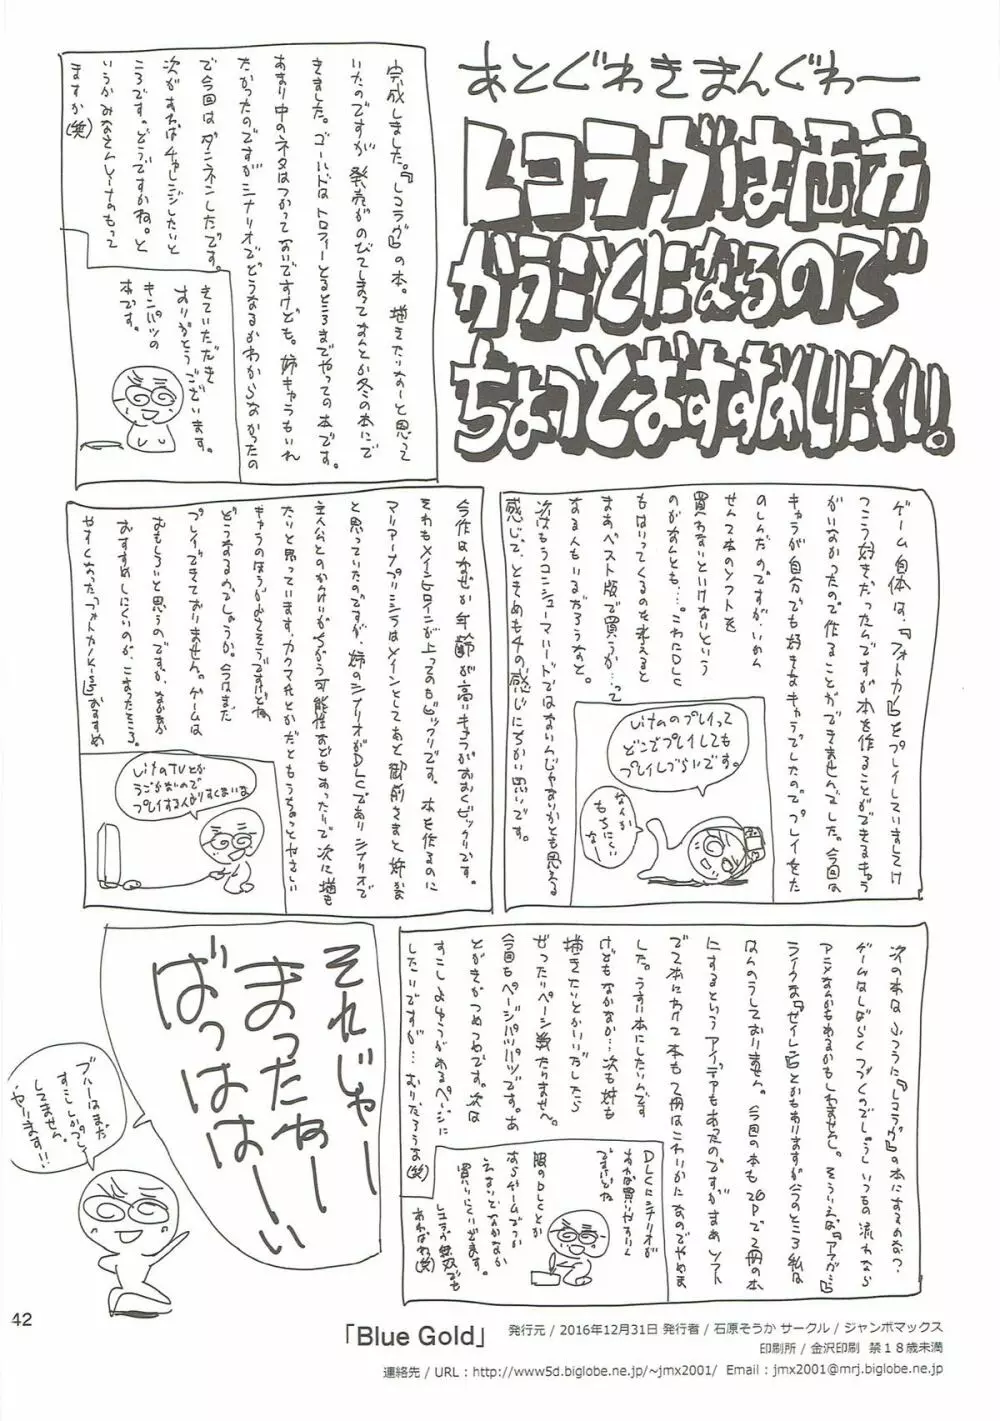 あとぐわきまんぐわー
レコラヴは両方
かうことになるので
ちょっとおすすめしにくい。
完成しました。『レコラヴ』の本。増きたいなーと思って
いたのですが 発売がのびてしまってなんとか冬の本にで
きました。ゴールドはトロフィーとるところまでやっての本です。
あまり中のネタはつかってないですけども。姉キャラもいれ
たかったのですがシナリオでどうなるかわからなかったの
で今回はダンネンしたです。
次があればチャレンジしたいと
ころです。どうですかね。と
いうかみなさんレーナのもって
ますか(笑)
きていただき
ありがとうございます。
キンパツの
本です。
ゲーム自体は、『フォトカノ』をプレイしていましてけ
っこう好きだったんですが本を作ることができるキャラ
がいなかったので作ることができませんでした。今回は
キャラが自分でも好きなキャラでしたので プレイをた
のしんだのですが、いかん
せん2本のソフトを
買わないといけないという
のがなんとも…。これにDLC
もはいってくるのを考えると
まあベスト版で買うか…って
なる人もいるだろうなと。
次はもうコンシューマハードではないんじゃないかとも思える
感じで、ときめも4の感じにちかい思いです。
Vitaのプレイって
どこでプレイしても
プレイしづらいです。
なんか
もちにくい
なー
今作はなぜか年齢が高いキャラがおおくビックリです。
それもメインヒロインが上ってのもビックリです。本を作るのに
マリアーナプリシラはメインとしてあと御前さまと姉かな
と思っていたのですが、姉のシナリオがDLCでありシナリオで
主人公とのかけいがちがう可能性などもあったりで次に増も
たりと思っています。カクマ氏とかだともうちょっとやさしい
キャラのほうがよさそうですけどね
どうなるのでしょうか。今はまだ
プレイできておりません。ゲームは
おもしろいと思うのですが、なかなか
おすすめしにくいのが、こまったところ。
やすくなった「フォトカノKiss」おすすめ
VitaTVとか
うごかないので
プレイする人がりすくないな
次の本は ふつうに『レコラヴ』の本にするのかな?
ゲームはしばらくつづくのでしょうし いつもの流れなら
アニメなんかもあるかもしれませんし。そういえば『アマガミ』
ライクな『セイレン』とかもありますが今のところ私は
なんのうしておりません。今回の本も26Pで2冊の本
にするというアイデアもあったのですが まあ ソフト
で2本にわけて 本も2冊はこわりかになのでやめま
した。うすい本にしたいんです
けども なかなか…次も姉も
描きたいとかいいだしたら
ぜったいページ数たりません。
今回もページパツパツです。あ
とがきがつめつめです。次は
すこしよゆうがあるページに
したいですが… むりだろうな(笑)
DLCにシナリオが
あれば買いせんりん
ですけどね
服のDLCとか
すらゲームでつか
えないとなかなか
買いにくいだます。
レコラヴ無双でも
あればね(笑)
それじゃー
まったねー
ばっはは〜い
ブルーはまだ
すこししかプレイ
してません。
やります!!
42
「Blue Gold」
発行元 / 2016年12月31日 発行者 / 石原そうか サークル / ジャンボマックス
印刷所 / 金沢印刷 禁18歳未満
連絡先 / URL : http://www5d.biglobe.ne.jp/~jmx2001/ Email : jmx2001@mrj.biglobe.ne.jp